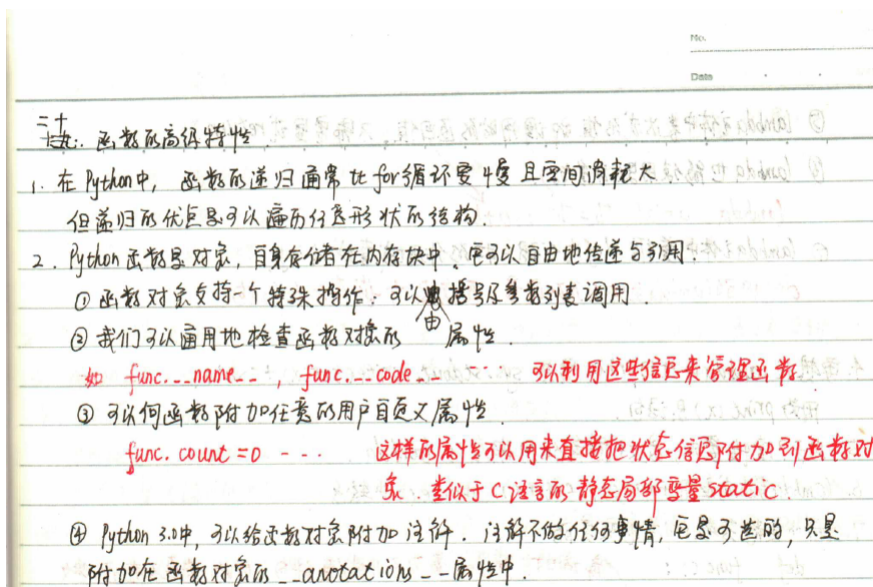 No.
Date
三十
函数的高级特性
1. 在Python中, 函数的递归通常比for循环要慢且空间消耗大
但递归的优点是可以遍历任意形状的结构.
2. Python函数是对象, 自身存储在内存块中. 它可以自由地传递与引用.
① 函数对象支持一个特殊操作: 可以由括号及参数列表调用
② 我们可以通用地检查函数对象的 属性.
如 func.__name__ , func.__code__ ... 可以利用这些信息来管理函数
③ 可以向函数附加任意的用户自定义属性
func.count=0 --- 这样的属性可以用来直接把状态信息附加到函数对
象 类似于C语言的静态局部变量static
④ Python 3.0中, 可以给函数对象附加注解. 注解不做任何事情, 它是可选的, 只是
附加在函数对象的__anotations__属性中.